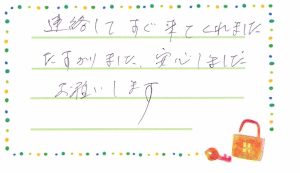 連絡してすぐ来てくれました
たすかりました、安心しました
お願いします